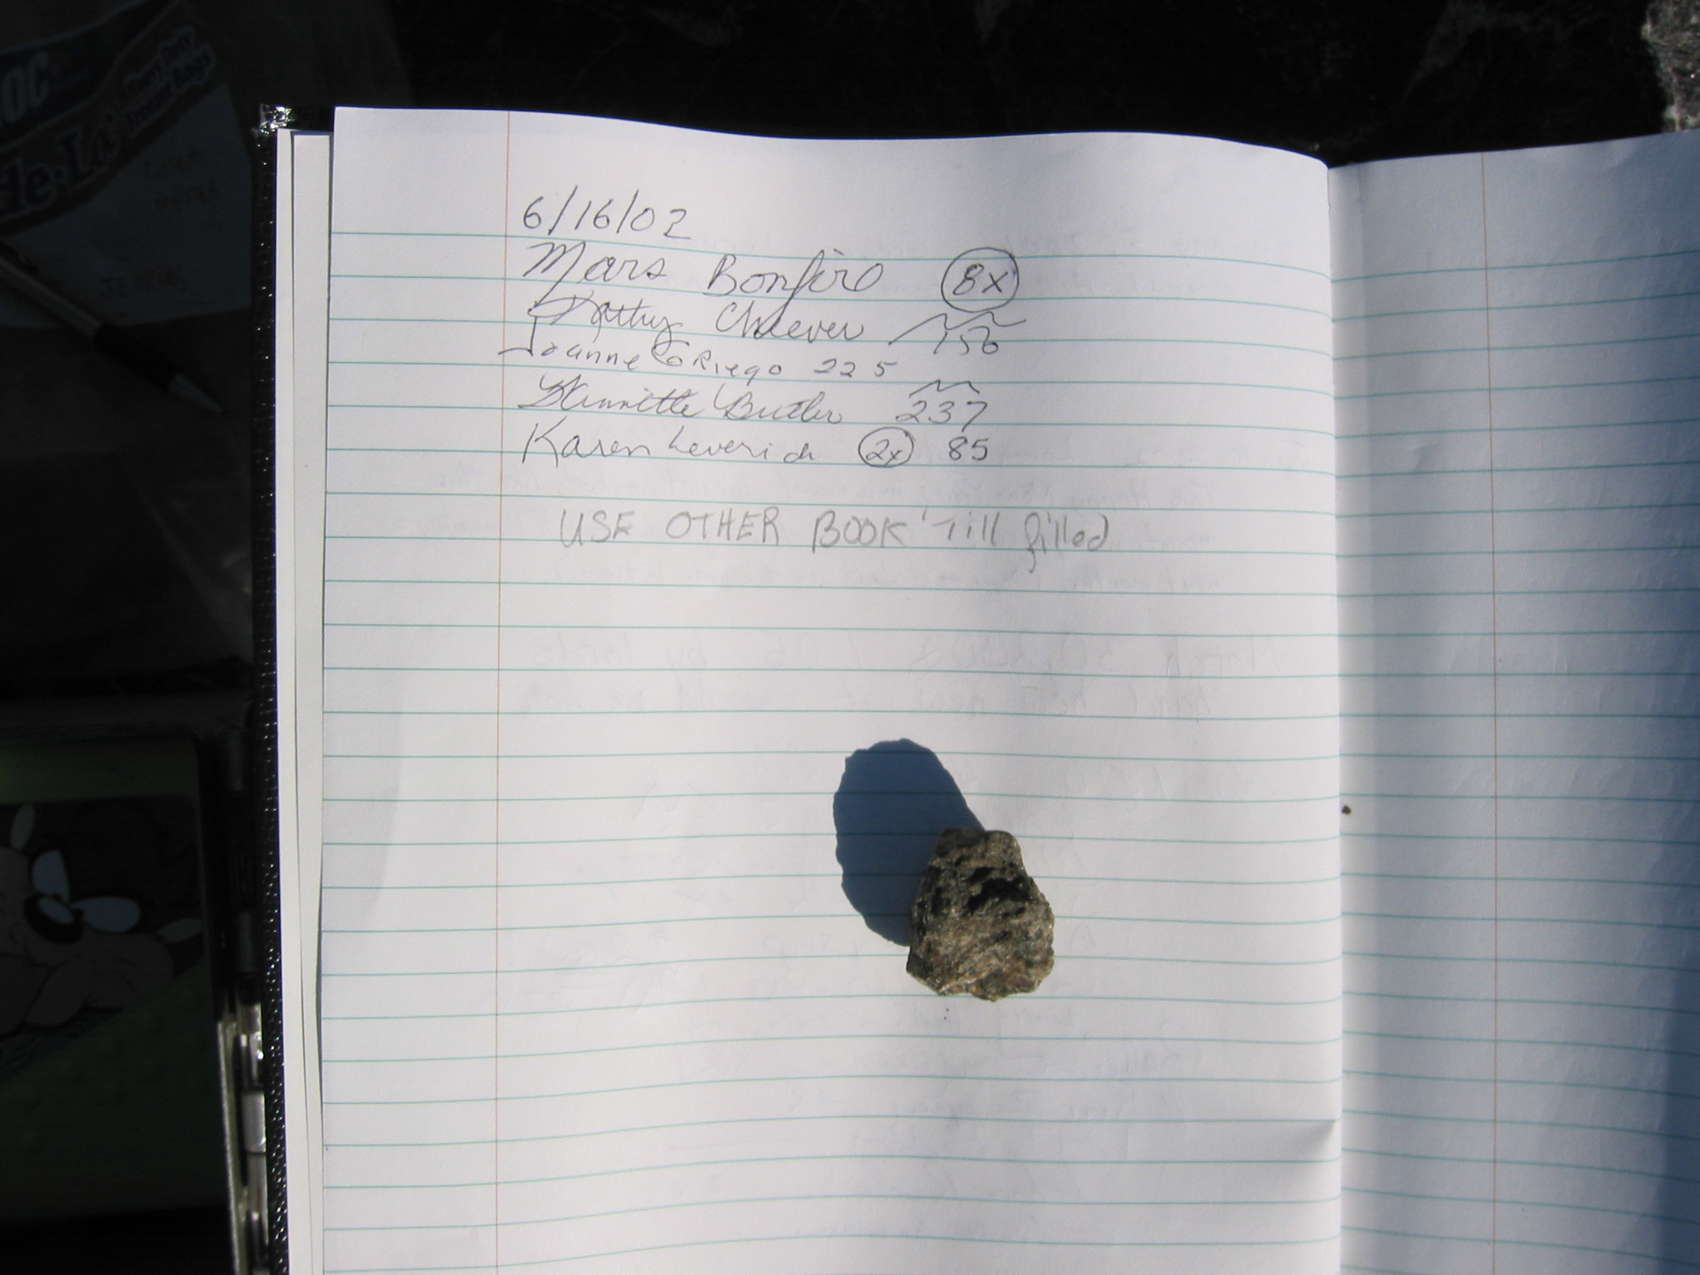 OC
de-La
6/16/02
Mars Bonfire 8x
Kathy Cheever 156
Joanne Griego 225
Henriette Butler 237
Karen Leverich 2x 85
USE OTHER BOOK 'Till filled